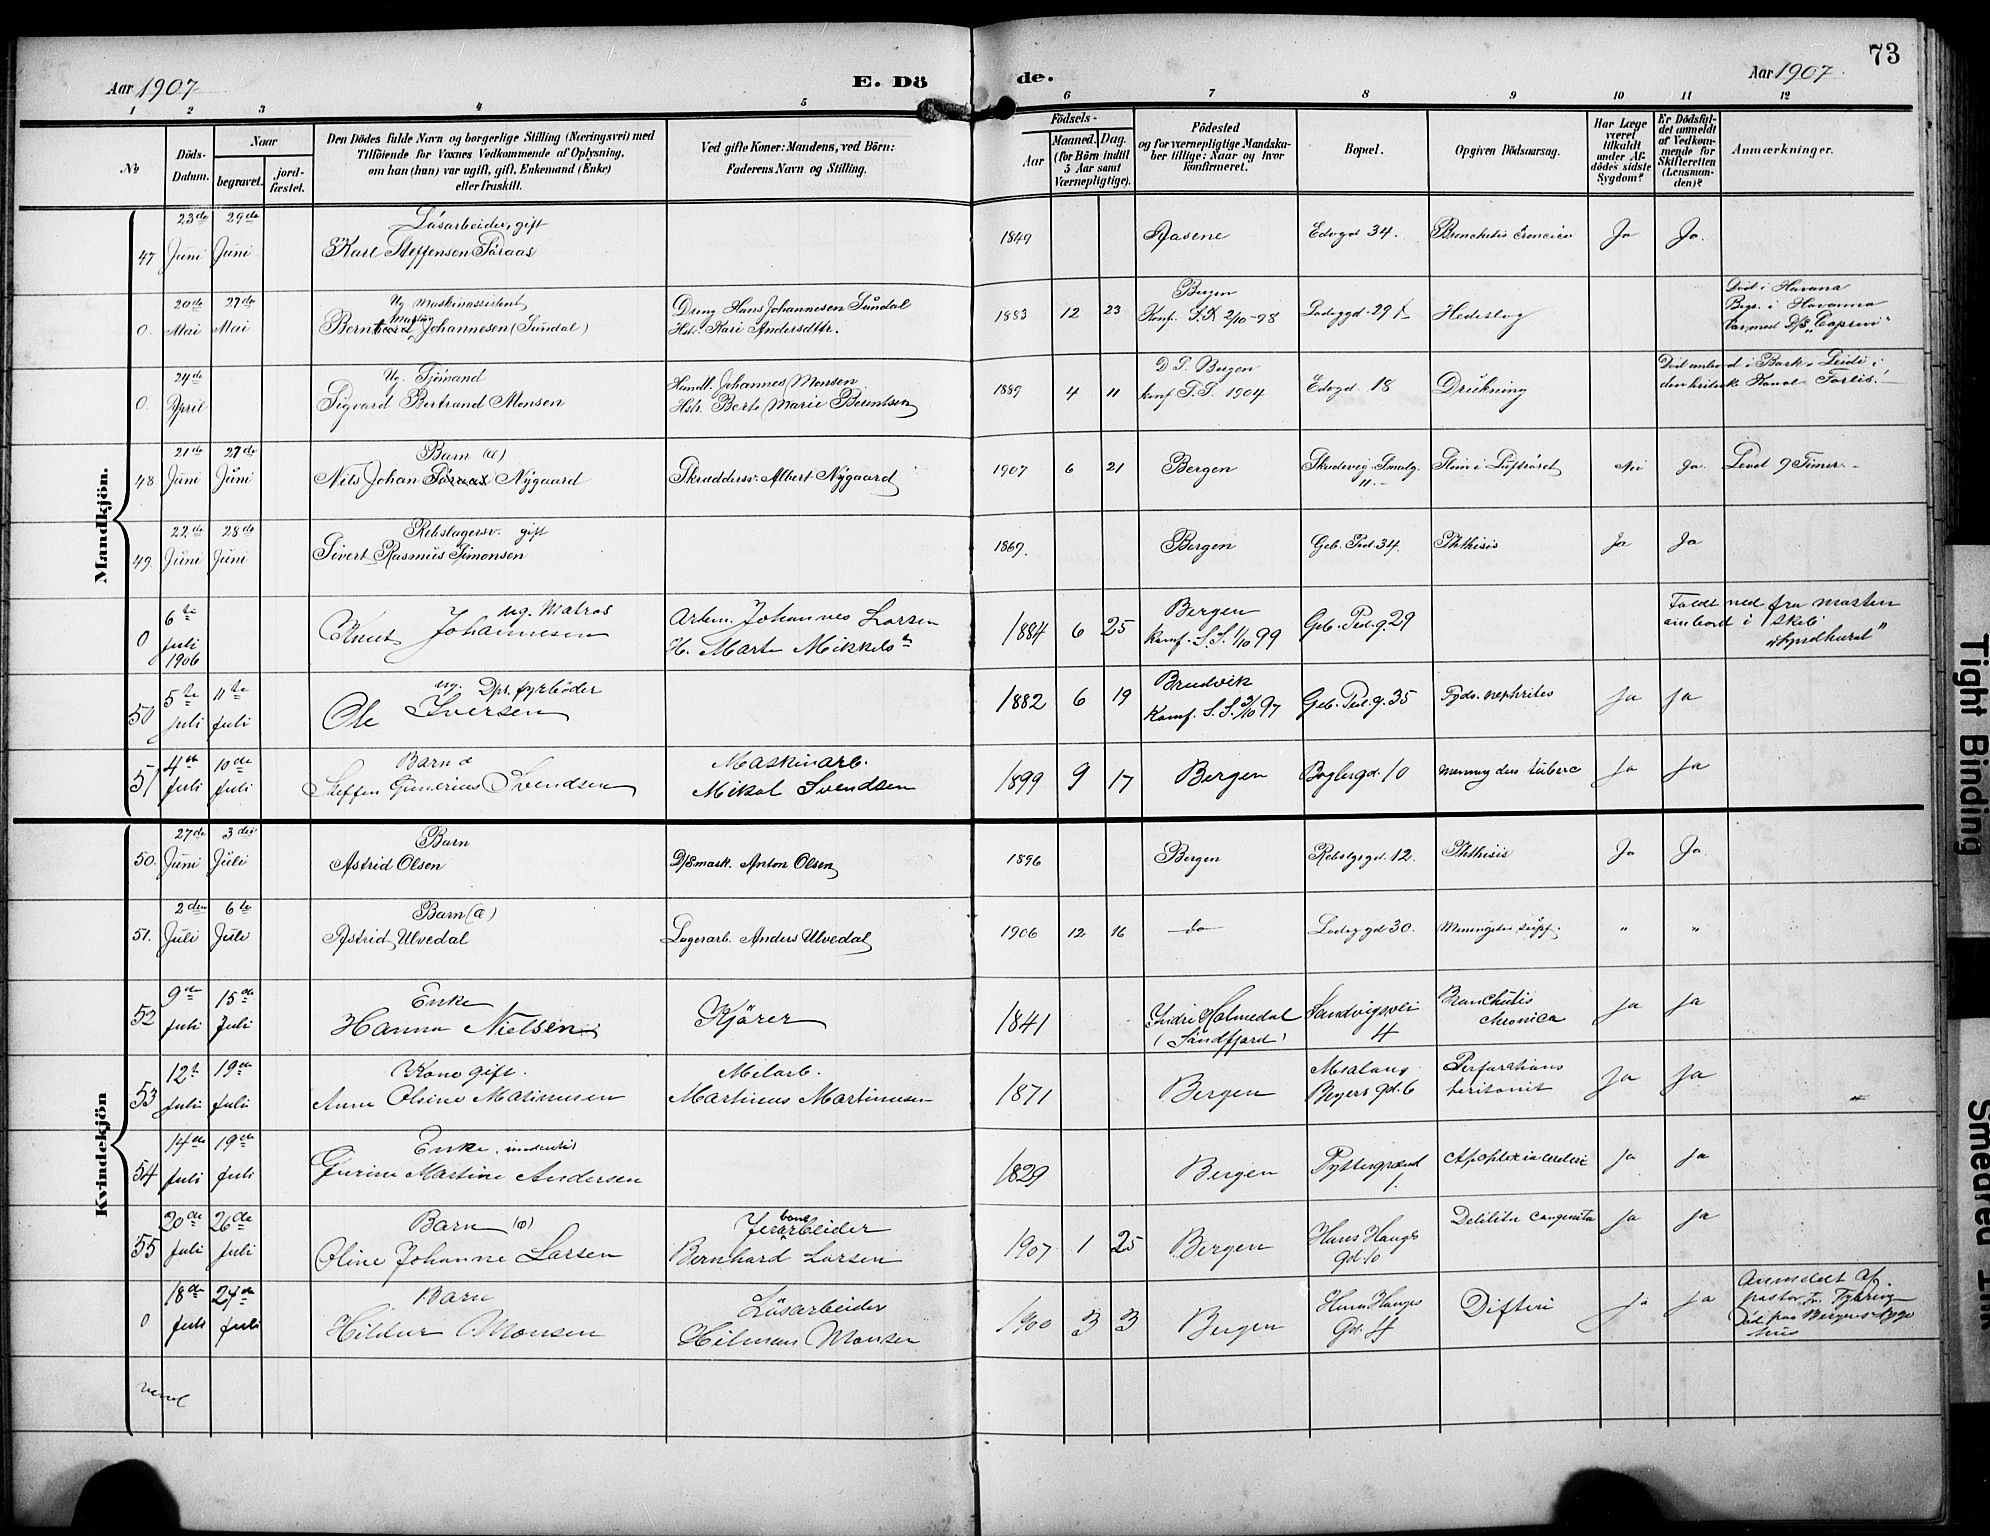 73
Aar 1907
E. Döde.
Aar 1907
1 2 3 4 5 6 7 8 9 10 11 12
No
Döds-Datum.
Naar
begravet.
jordfæstet.
Den Dödes fulde Navn og borgerlige Stilling (Næringsvei) med
Tilföiende for Voxnes Vedkommende af Oplysning,
om han (hun) var ugift, gift, Enkemand (Enke)
eller fraskilt.
Ved gifte Koner: Mandens, ved Börn:
Faderens Navn og Stilling.
Födsels-
Aar
Maaned. Dag.
(for Börn indtil
5 Aar samt
Værnepligtige).
Födested
og for værnepligtige Mandskaber tillige: Naar og hvor
konfirmeret.
Bopæl.
Opgiven Dödsaarsag.
Har Læge
været
tilkaldt
under Afdödes sidste
Sygdom?
Er Dödsfaldet anmeldt
af Vedkommende for
Skifteretten
(Lensmanden)?
Anmærkninger.
Mandkjön.
47 23de Juni 29de Juni
Lösarbeider, gift
Karl Steffensen Söraas
1849 Aasene Edvgd 34. Bronchitis cronica Ja Ja.
0. 20de Mai 27de Mai
Ug Maskinassistent
Bernt Martin Johannesen (Sundal)
Dreng Hans Johannesen Sundal
Hst. Kari Andersdtr.
1883 12 23 Bergen
Konf. S.K 2/10-98
Ladeggd. 29
Hedeslag
Död i Havana
Begr. i Havanna
Var med D/S "Caprivi"
0. 24de April
Ug. Sjömand
Sigvard Bertrand Monsen
Handl. Johannes Monsen
Hst. Berte Marie Berentsen
1889 4 11 D.S. Bergen
konf S.S. 1904
Edvgd. 18 Drukning
Död ombord i Bark Leidi i
den britisk Kanal Forlis!
48 21de Juni 27de Juni
Barn (æ)
Nils Johan Söraas Nygaard
Skræddersv. Albert Nygaard
1907 6 21 Bergen Skudevig Smalg. 11.- Slim i Luftröret Nei Ja. Levet 9 Timer.-
49. 22de Juni 28de Juni
Rebslagersv. gift
Sivert Rasmus Simonsen
1869. Bergen Geb. Ped. 34. Phthisis Ja Ja
0 6te Juli 1906
ug. Matros
Knut Johannesen
Arbm. Johannes Larsen
H. Marte Mikkels
1884 6 25 Bergen
Konf. S.S. 1/10 99
Geb. Ped.g. 29
Faldt ned fra masten
ombord i Skib
"Lyndhurst"
50 5te Juli 11te Juli
ug. Dps. fyrböder
Ole Iversen
1882 6 19 Bruvik
Konf. S.S. 3/10 97
Geb. Ped.g. 35 Tyds. nephrites Ja Ja
51 4de Juli 10de Juli
Barn æ
Steffen Gunerius Svendsen
Maskinarb.
Mikal Svendsen
1899 9 17 Bergen Boglergd. 10 tuberc Ja Ja
Kvindekjön
50. 27de Juni 3die Juli
Barn
Astrid Olsen
D/Smask. Anton Olsen
1896 Bergen Rebslgrgd. 12. Phthisis Ja Ja.
51. 2den Juli 6te Juli
Barn (æ)
Astrid Ulvedal
Lagerarb. Anders Ulvedal
1906 12 16 do Ladeggd 30. Meningitis supp. " "
52 9de Juli 15de Juli
Enke
Hanna Nielsen
Kjörer
1841 Indre Holmedal
(Söndfjord)
Sandvigsvei 4
Bronchitis chronica
Ja Ja
53 12te Juli 19de Juli
Kone gift.
Anna Olsine Martinusen
Melarb.
Martinus Martinusen
1871 Bergen
Beyers gd. 6
Perforations peritonit
Ja Ja
54 14de Juli 19de Juli
Enke,
Gjurine Martine Andersen
1829 Bergen Pyttergrænd 1. Apoplexia cerebri Ja Ja
55 20de Juli 26de Juli
Barn (æ)
Oline Johanne Larsen
Jernbanearbeider
Bernhard Larsen
1907 1 25 Bergen Hans Hauges gd. 10 Debilitas congenita Ja Ja
0 18de Juli 24de Juli
Barn
Hildur Monsen
Lösarbeider
Hilman Monsen
1900 3 3 Bergen Hans Hauges Gd. 4 Difteri Ja Ja
Anmeldt af
pastor Fr. Tybring
Död paa Bergens Sygehus
vend
Tight Binding
Smeared Ink